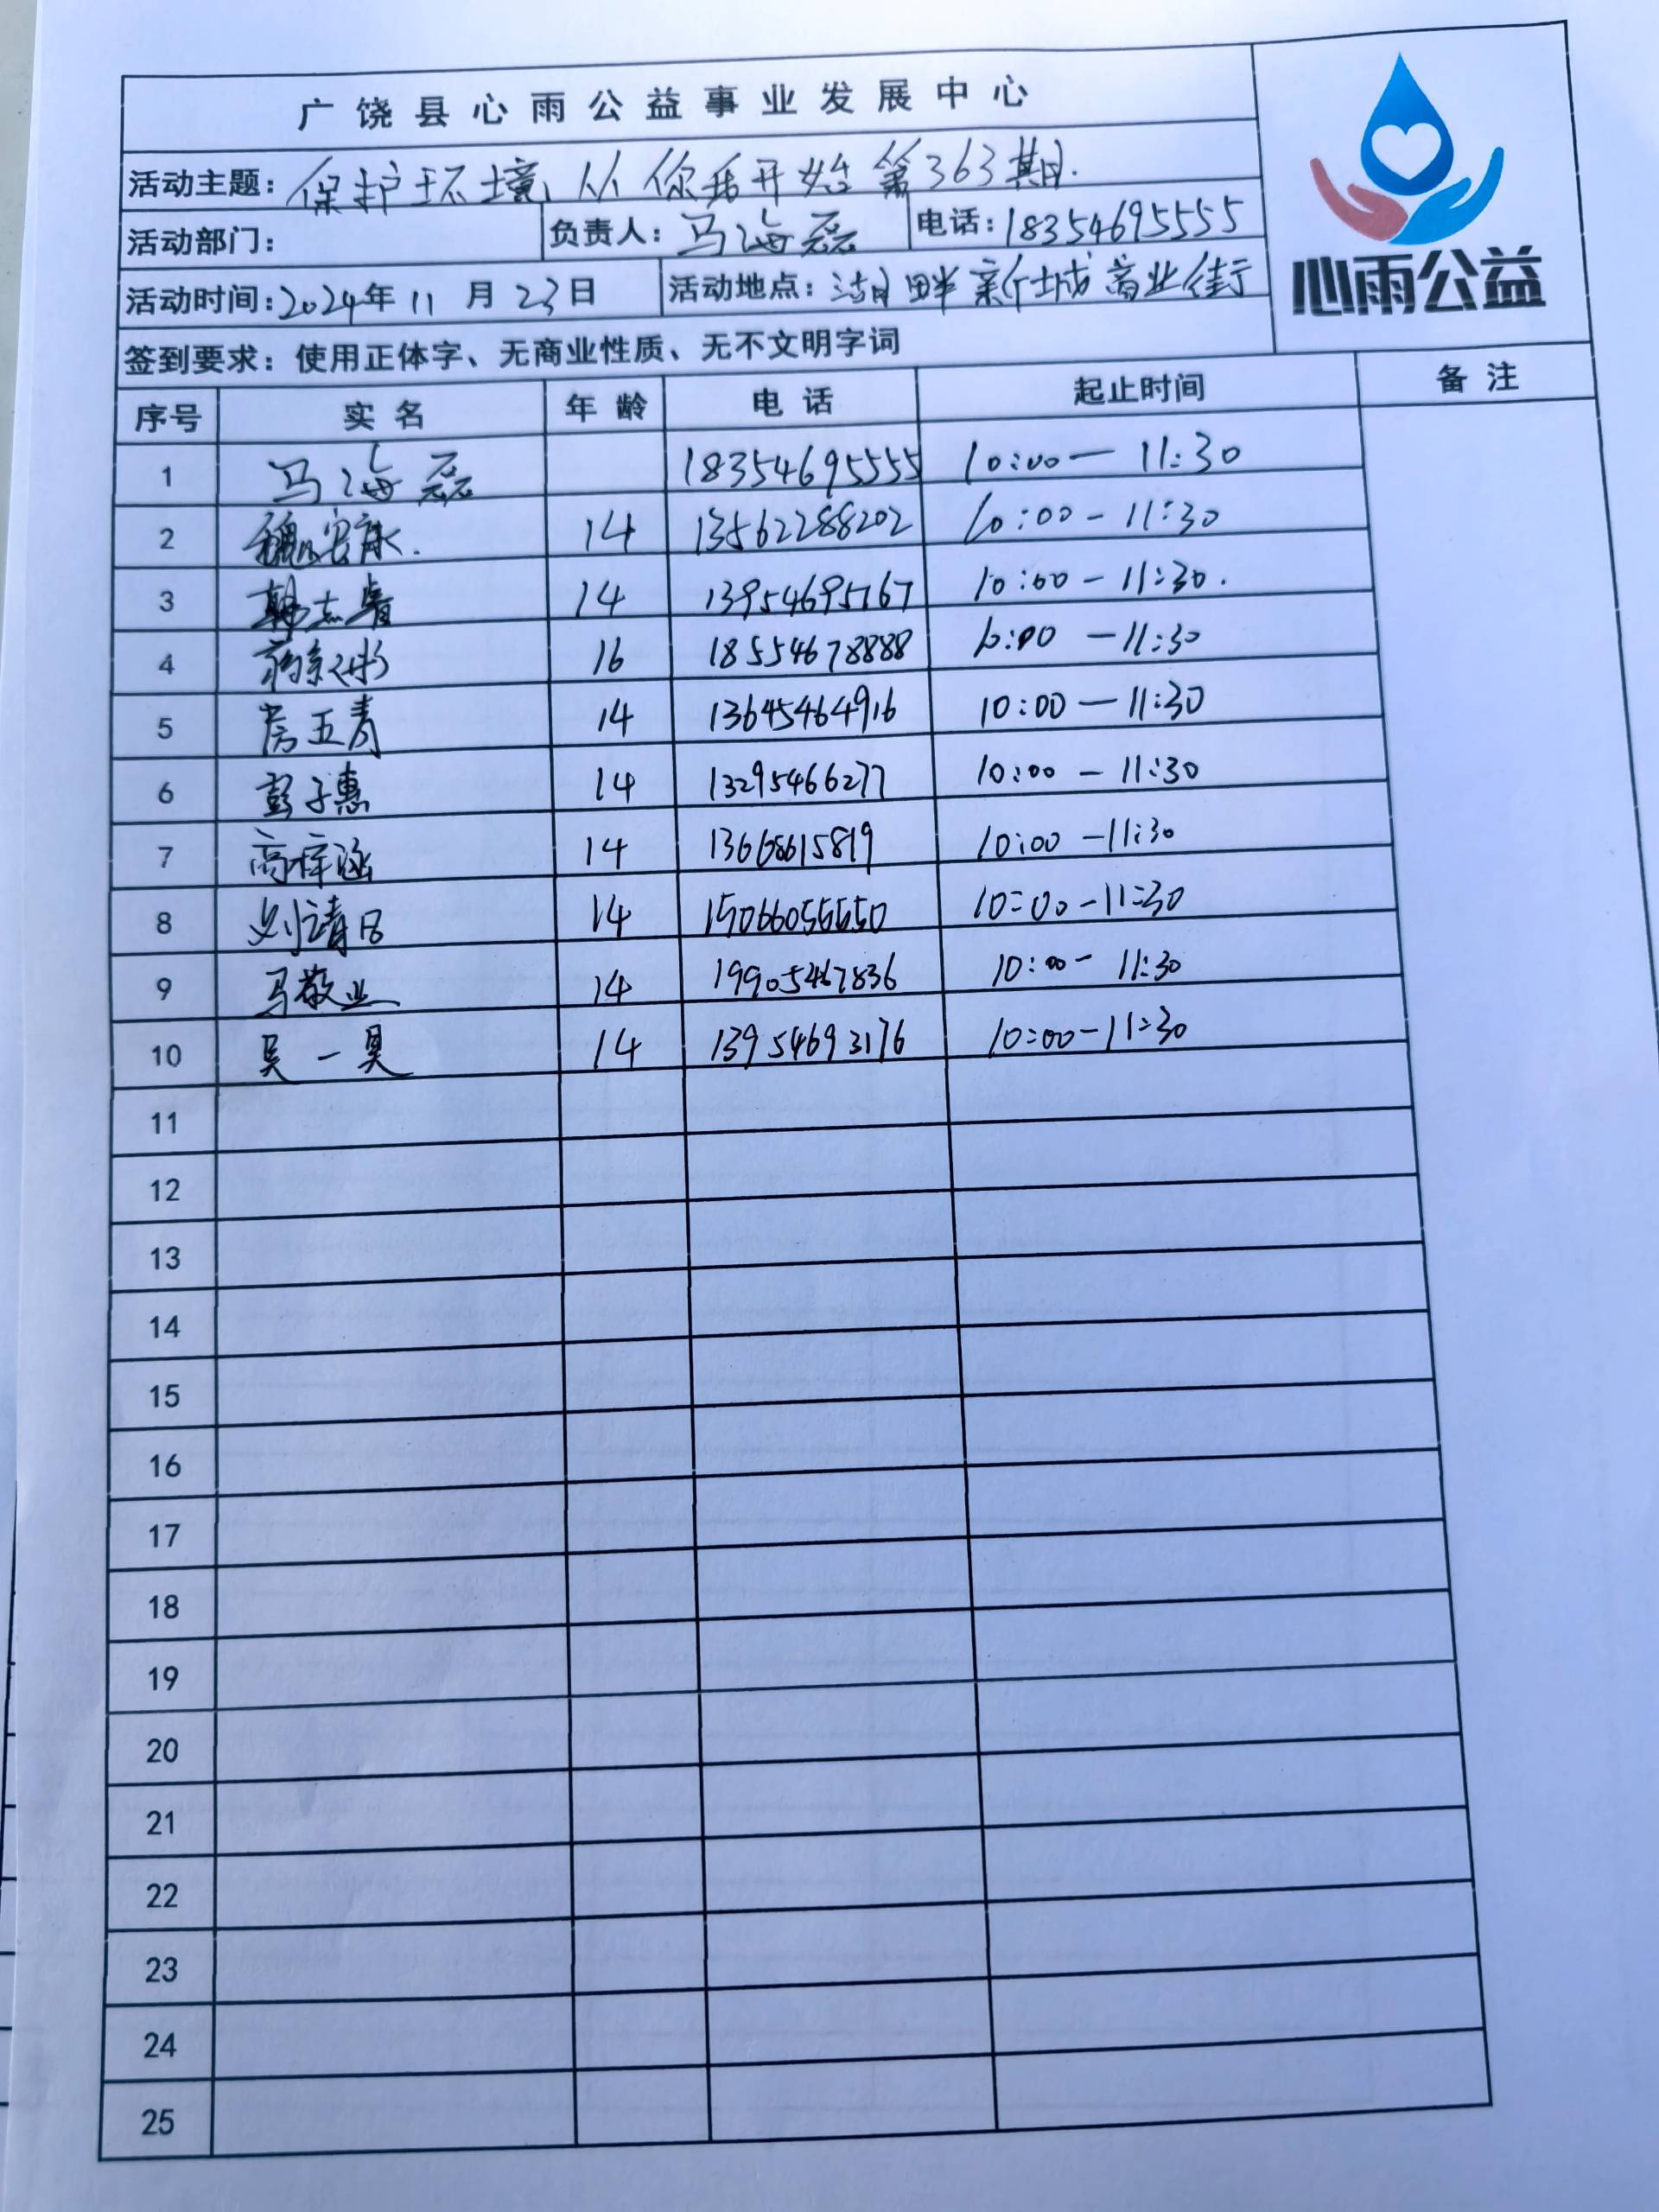 广饶县心雨公益事业发展中心
活动主题：保护环境，从你我开始第363期.
活动部门： 负责人：马海磊 电话：18354695555
活动时间：2024年11月23日 活动地点：湖畔新城商业街
心雨公益
签到要求：使用正体字、无商业性质、无不文明字词
序号 实名 年龄 电话 起止时间 备注
1 马海磊 18354695555 10:00—11:30
2 魏 14 13562288202 10:00-11:30
3 韩志 14 13954695767 10:00-11:30.
4 16 18554678888 10:00-11:30
5 14 13645464916 10:00—11:30
6 彭子惠 14 13295466277 10:00-11:30
7 高梓涵 14 10:00-11:30
8 刘 14 10:00-11:30
9 马敬业 14 19905467836 10:00-11:30
10 吴一昊 14 13954693176 10:00-11:30
11
12
13
14
15
16
17
18
19
20
21
22
23
24
25